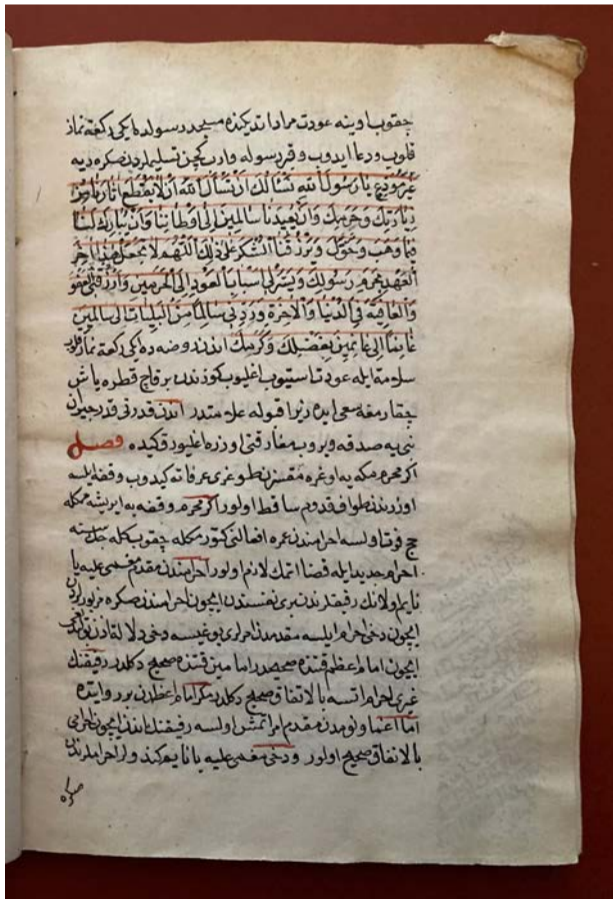 چقوب اوينه عودت مراد اتدكده مسجد رسولده ايكى ركعت نماز
قلوب و دعا ايدوب و قبر رسوله واروب كچن تسليملردن صكره ديه
غَيْرَ مُوَدَّعٍ يَا رَسُولَ اللهِ نَسْأَلُكَ اَنْ تَسْأَلَ اللهَ اَنْ لَا يَقْطَعَ اٰثَارَنَا مِنْ
زِيَارَتِكَ وَحَرَمِكَ وَاَنْ يُعِيدَنَا سَالِمِينَ اِلَى اَوْطَانِنَا وَاَنْ يُبَارِكَ لَنَا
فِيمَا وَهَبَ وَخَوَّلَ وَيَرْزُقَنَا الشُّكْرَ عَلَى ذٰلِكَ اَللّٰهُمَّ لَا تَجْعَلْ هٰذَا اٰخِرَ
الْعَهْدِ بِحَرَمِ رَسُولِكَ وَيَسِّرْ لِي اَسْبَابَ الْعَوْدِ اِلَى الْحَرَمَيْنِ وَارْزُقْنِي الْعَفْوَ
وَالْعَافِيَةَ فِي الدُّنْيَا وَالْاٰخِرَةِ وَرُدَّنِي سَالِمًا مِنَ الْبَلِيَّاتِ اِلَى سَالِمِينَ
غَانِمًا اِلَى غَانِمِينَ بِفَضْلِكَ وَكَرَمِكَ اندن روضه ده ايكى ركعت نماز قلوب
سلامة ايله عودت استيوب اغليوب كوزندن بر قاچ قطره ياش
چقارمغه سعى ايده زيرا قبوله علامتدر اندن قدرتى قدر جيران
نبى يه صدقه ويروب مفارقتى اوزره اغليورق كيده فصل
اكر محرم مكه يه اوغرمقسزن طوغرى عرفاته كيدوب وقفه ايلسه
اوزرندن طواف قدوم ساقط اولور اكر محرم وقفه يه ايريشه مكله
حج فوت اولسه احرامندن عمره افعالنى كتورمكله چقوب كله جك سنه
احرام جديد ايله قضا اتمك لازم اولور احرامندن مقدم مغمى عليه يا
نايم اولانك رفيقلرندن برى نفسندن ايچون احرامندن صكره
ايچون دخى احرام ايلسه مقدمدن
ايچون امام اعظم قتنده صحيحدر امامين قتنده صحيح دكلدر رفيقنك
غيرى احرام اتسه بالاتفاق صحيح دكلدر مكر امام اعظمدن بر روايتده
اما اغما و نومدن مقدم امر اتمش اولسه رفيقنك انلر ايچون احرامى
بالاتفاق صحيح اولور و دخى مغمى عليه يا نايم كندولر احراملرندن
صكره